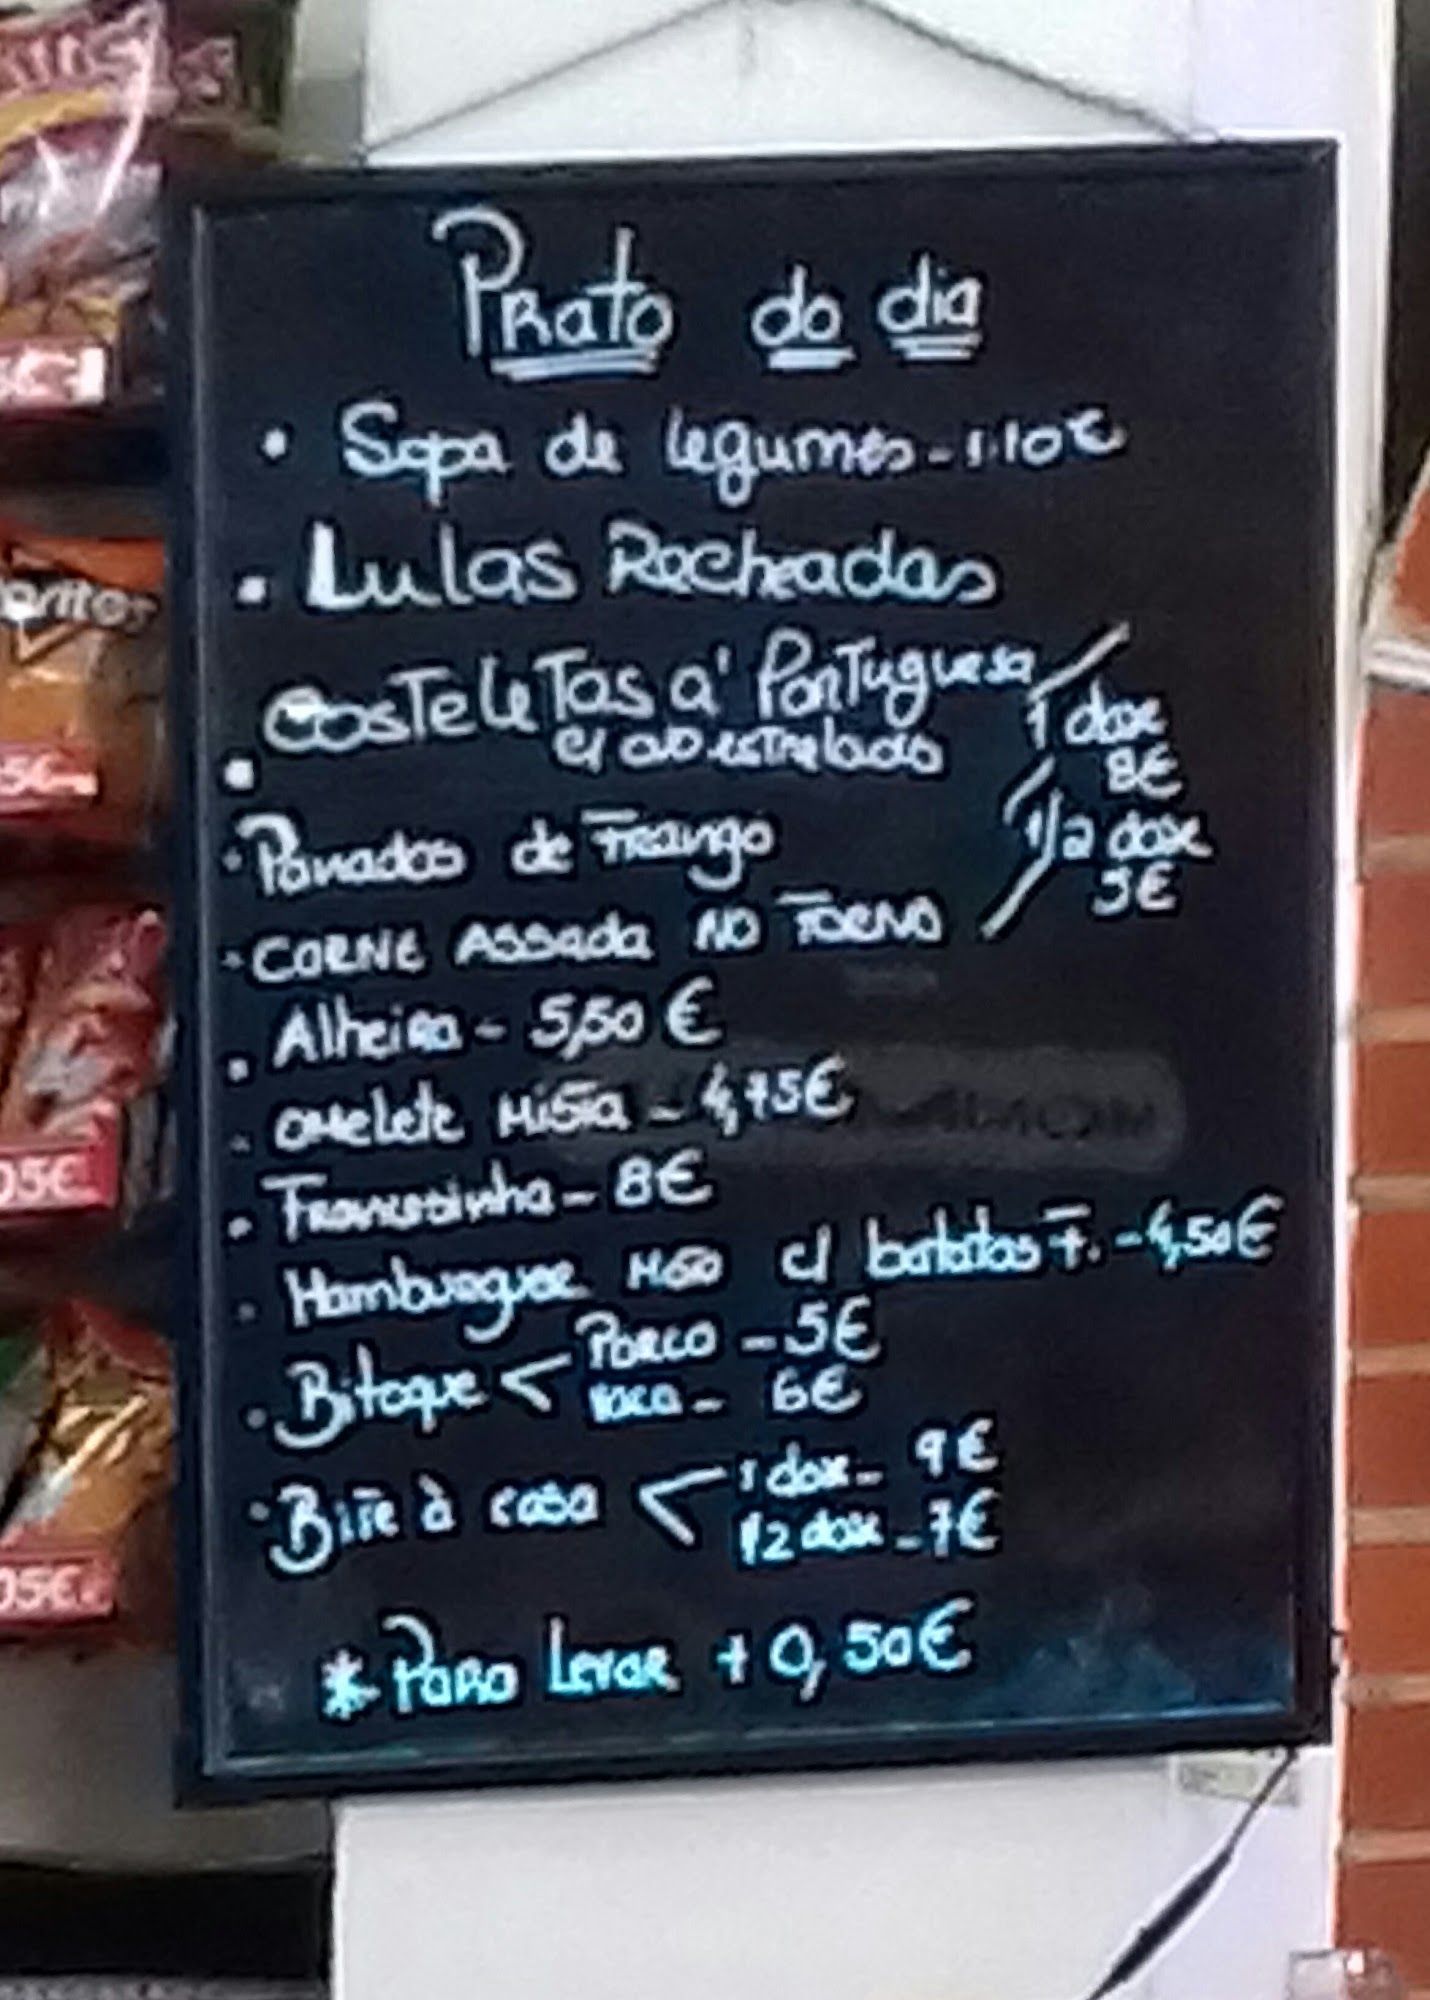 Prato do dia
• Sopa de legumes - 1.10€
• Lulas Recheadas
• Costeletas à Portuguesa
c/ ovo estrelado
1 dose
8€
1/2 dose
5€
• Panados de Frango
• CARNE ASSada NO FORNO
• Alheira - 5,50 €
• omelete Mista - 4,75€
• Francesinha - 8€
• Hamburguer NO c/ batatas F. - 4,50€
• Bitoque < Porco - 5€
vaca - 6€
• Bife à casa < 1 dose - 9€
1/2 dose - 7€
* Para Levar + 0,50€
oritos
5€
05€
05€